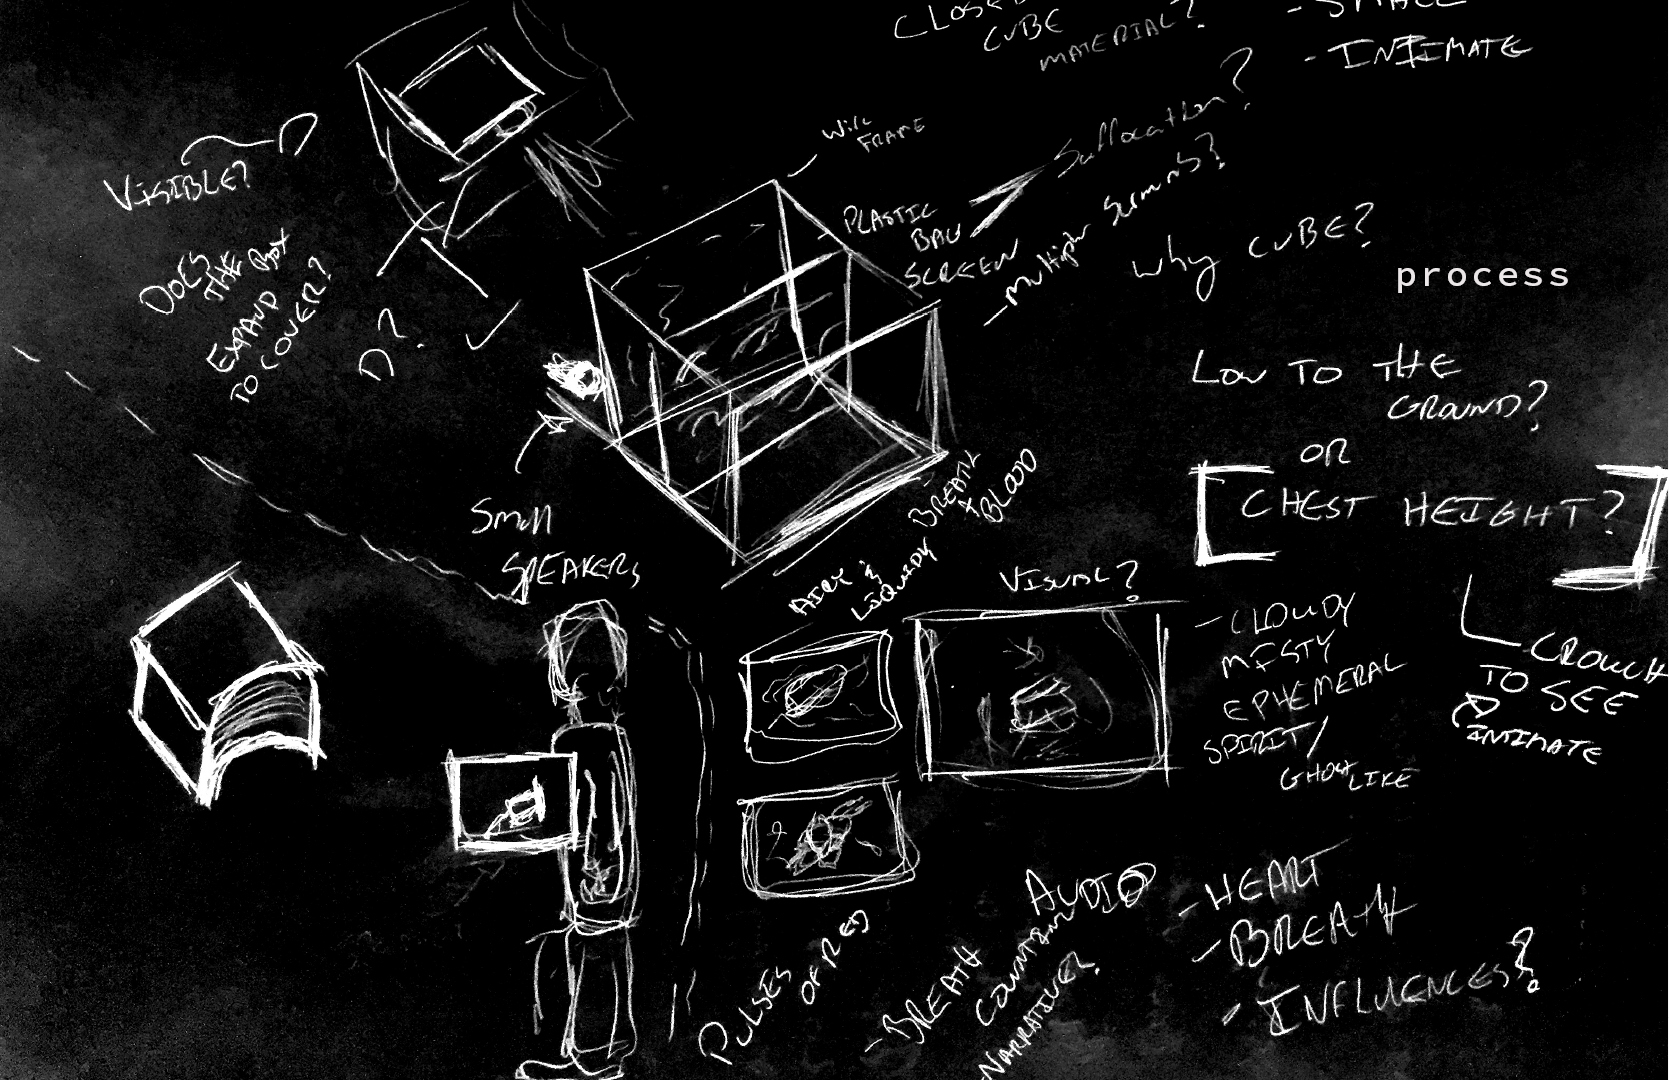 CLOSED
CUBE
MATERIAL?
- SMALL
- INTIMATE
WIRE
FRAME
Suffocation?
PLASTIC
BAG
SCREEN
- Multiple
Why CUBE?
process
VISIBLE?
DOES
THE BOX
EXPAND
TO COVER?
D?
LOW TO THE
GROUND?
OR
CHEST HEIGHT?
CROUCH
TO SEE
INTIMATE
Small
SPEAKERS
BREATH
&
BLOOD
AIRY &
LIQUIDY
VISUAL?
- CLOUDY
MISTY
EPHEMERAL
SPIRIT/
GHOST LIKE
PULSES
OF RED
AUDIO
- HEART
- BREATH
- INFLUENCES?
- BREATH
COUNTING
NARRATIVE?